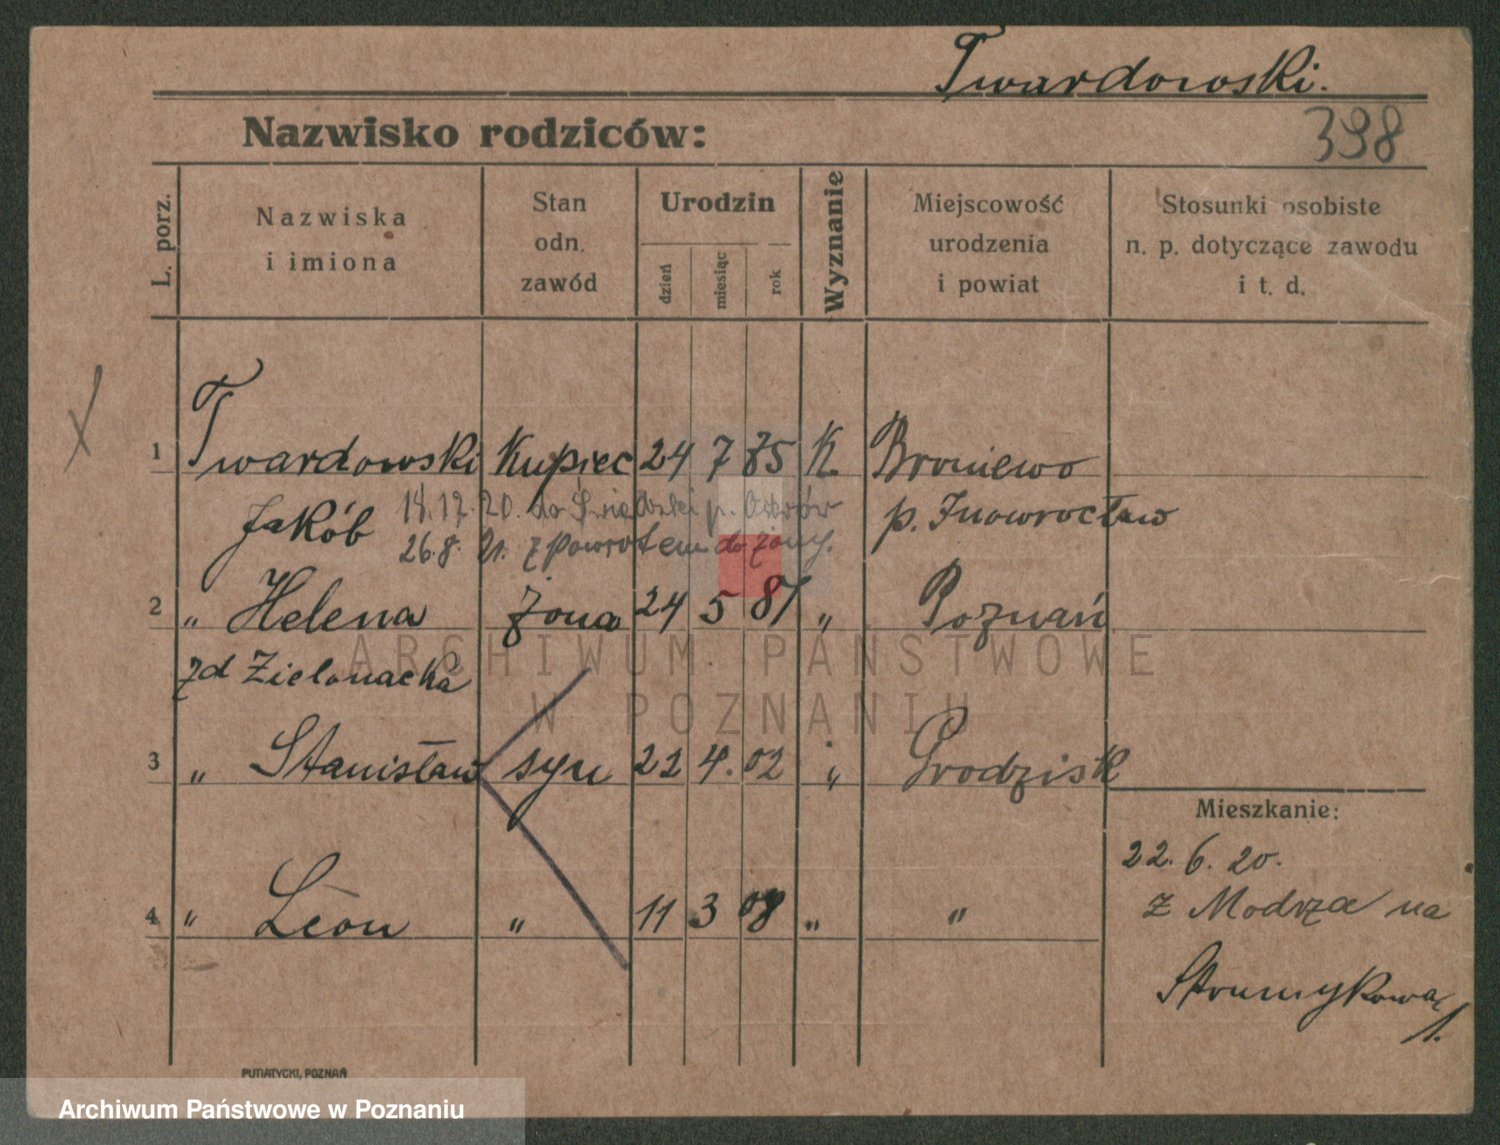 Twardowski.
398
Nazwisko rodziców:
L. porz.
Nazwiska
i imiona
Stan
odn.
zawód
Urodzin
dzień
miesiąc
rok
Wyznanie
Miejscowość
urodzenia
i powiat
Stosunki osobiste
n. p. dotyczące zawodu
i t. d.
1 Twardowski Kupiec 24 7 75 K. Broniewo
Jakób p. Inowrocław
14.12.20. do p. Ostrów
26.8.21. z powrotem do żony.
2 " Helena żona 24 5 81 " Poznań
zd Zielonacka
3 " Stanisław syn 22 4. 02 " Grodzisk
4 " Leon " 11 3 08 " "
Mieszkanie:
22. 6. 20.
z Modrza na
Strumykowa
1.
PUTIATYCKI, POZNAŃ
ARCHIWUM PAŃSTWOWE
W POZNANIU
Archiwum Państwowe w Poznaniu